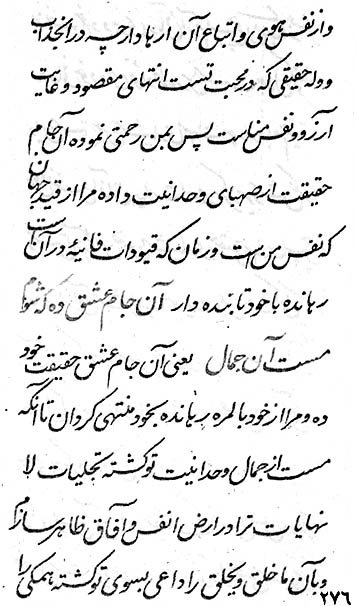 واز نفس وهوی و اتباع آن اربا دارچه در انجذاب
و وله حقیقی که در محبت تست انتهای مقصود و غایت
آرزو و نفس مناست پس بمن رحمتی نموده آن جام
حقیقت از صهبای وحدانیت داده مرا از قید جهان
که نفس من است و زمان که قیودات فانیهٔ در آن است
رهانده با خود تابنده دار آن جام عشق ده که شوم
مست آن جمال یعنی آن جام عشق حقیقت خود
ده و مرا از خود بالمره رهانده بخود منتهی گردان تا آنکه
مست از جمال وحدانیت تو گشته تجلیات لا
نهایات ترا در ارض انفس و آفاق ظاهر سازم
و بآن ما خلق و یخلق را داعی بسوی تو گشته همگی را
۲۷۶